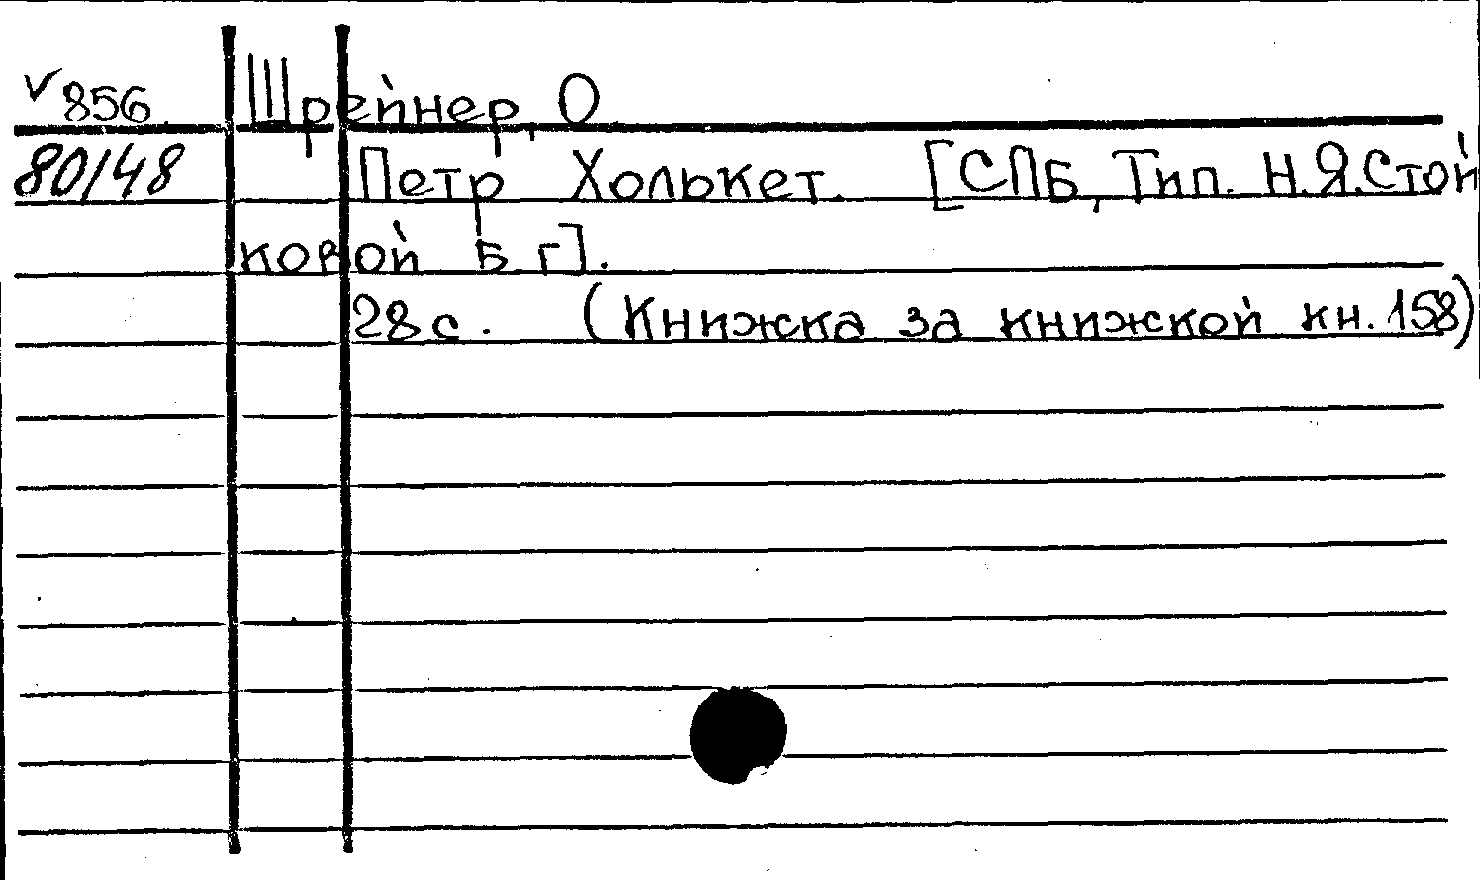 v 856 Шрейнер, О
80/48 Петр Холькет. [СПБ, Тип. Н.Я.Стой
ковой Б г].
28 с. (Книжка за книжкой кн. 158)